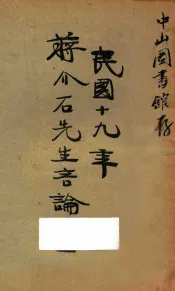 中山圖書館存
民國十九年
蔣介石先生言論